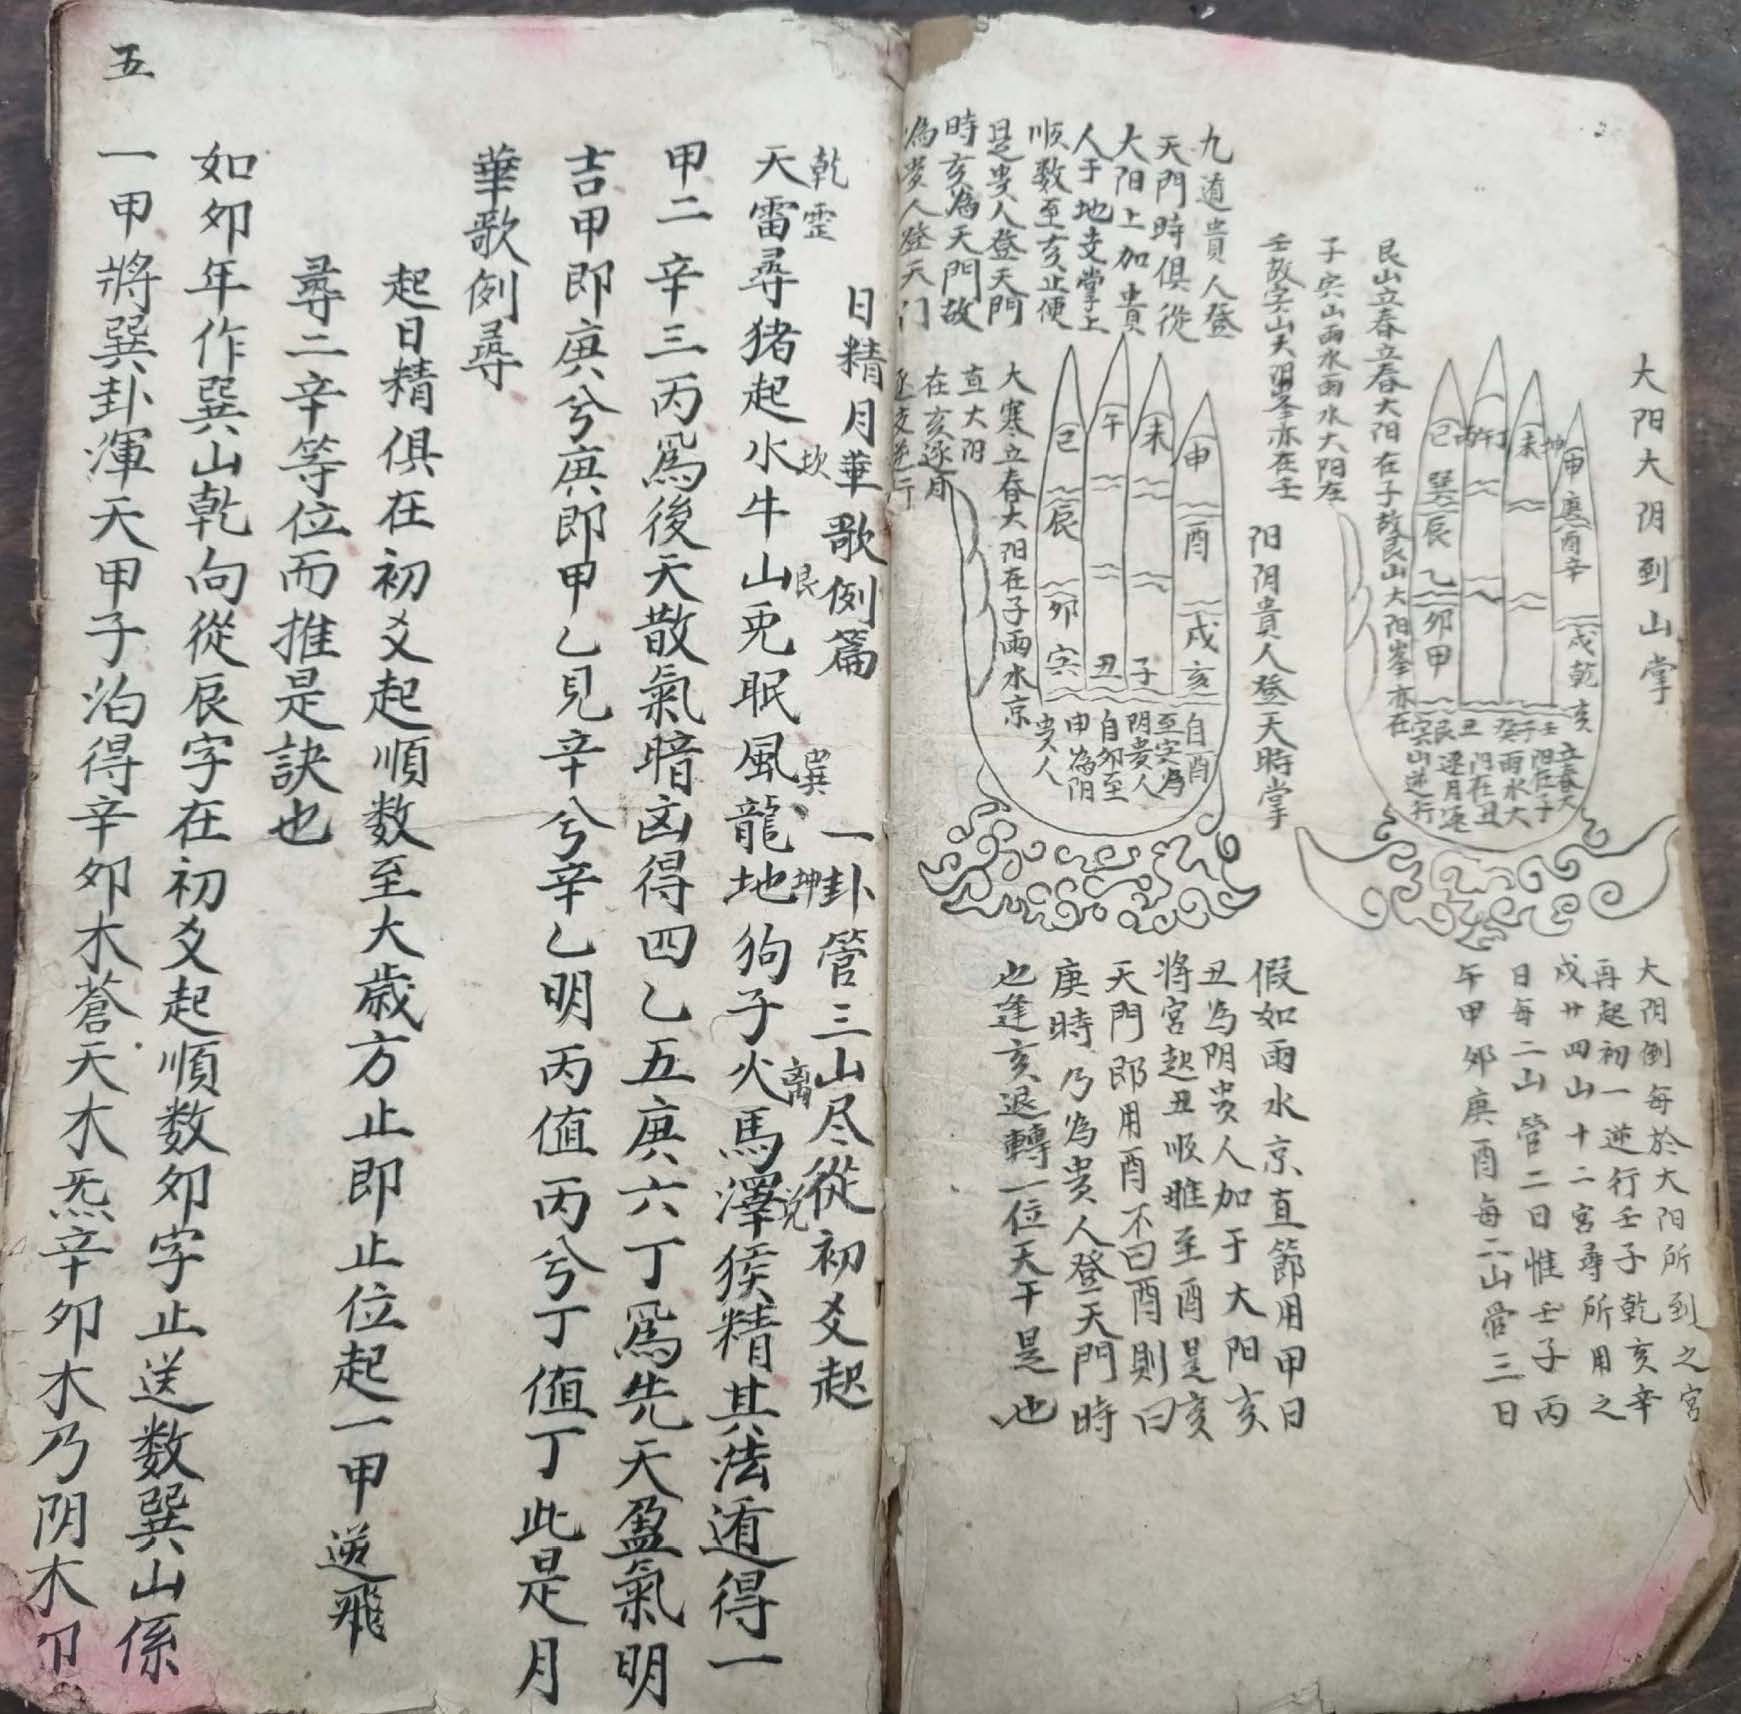 大阳大阴到山掌
艮山立春立春大阳在子故艮山大阳峯亦在
子㝙山雨水雨水大阳在
壬故㝙山大阳峯亦在壬
巳 丙 午 丁 未 坤 申
巽 辰 乙 卯 甲
庚 酉 辛 戌 乾 亥
㝙 艮 丑 癸 子 壬
立春大
阳在子
雨水大
阳在丑
逐月逐
山逆行
大阴倒每於大阳所到之宮
再起初一逆行壬子乾亥辛
戌廿四山十二宮尋所用之
日每二山管二日惟壬子丙
午甲卯庚酉每二山管三日
阳阴貴人登天時掌
九道貴人登
天門時俱從
大阳上加貴
人于地支掌上
順数至亥止便
是貴人登天門
時亥為天門故
為貴人登天门
大寒立春大阳在子雨水京
直大阳
在亥逐月
逐支逆行
巳 午 未 申
辰 酉
卯 戌
㝙 丑 子 亥
自酉
至㝙為
阴貴人
自卯至
申為阴
貴人
假如雨水京直節用甲日
丑為阴貴人加于大阳亥
將宮起丑順推至酉是亥
天門即用酉不曰酉則曰
庚時乃為貴人登天門時
也逢亥退轉一位天干是也
日精月華歌例篇 一卦管三山尽從初爻起
乾 坎 艮 巽 坤 離 兌
天雷尋猪起水牛山兎眠風龍地狗子火馬澤猴精其法遁得一
甲二辛三丙爲後天散氣暗凶得四乙五庚六丁爲先天盈氣明
吉甲即庚兮庚即甲乙見辛兮辛乙明丙值丙兮丁值丁此是月
華歌例尋
起日精俱在初爻起順数至大歲方止即止位起一甲逆飛
尋二辛等位而推是訣也
如卯年作巽山乾向從辰字在初爻起順数卯字止送数巽山係
一甲將巽卦渾天甲子泊得辛卯木蒼天木炁辛卯木乃阴木
五